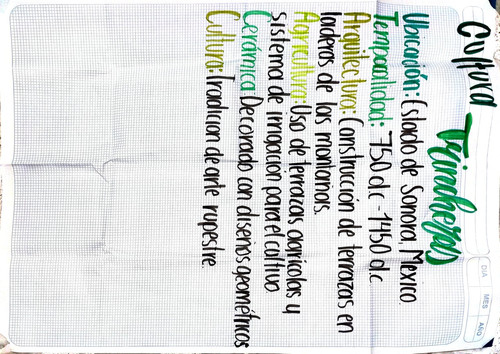 Cultura Trincheras
DIA MES AÑO
Ubicación: Estado de Sonora, Mexico.
Temporalidad: 750 d.c - 1450 d.c
Arquitectura: Construcción de terrazas en
laderas de las montañas.
Agricultura: Uso de terrazas agrícolas y
sistema de irrigacion para el cultivo
Cerámica: Decorado con diseños geométricos
Cultura: Tradicion de arte rupestre.